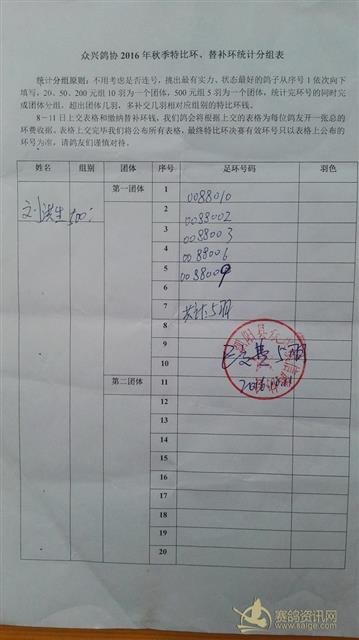 众兴鸽协 2016 年秋季特比环、替补环统计分组表
统计分组原则：不用考虑是否连号，挑出最有实力、状态最好的鸽子从序号 1 依次向下
填写，20、50、200 元组 10 羽为一个团体，500 元组 5 羽为一个团体，统计完环号的同时完
成团体分组，超出团体几羽，多补交几羽相对应组别的特比环钱。
8－11 日上交表格和缴纳替补环钱，我们鸽会将根据上交的表格为每位鸽友开一张总的
环费收据。表格上交完毕我们将公布所有表格，最终特比环决赛有效环号只以表格上公布的
环号为准，请鸽友们谨慎对待。
姓名 组别 团体 序号 足环号码 羽色
第一团体 1 0088010
刘洪生 500 2 0088002
3 0088003
4 0088006
5 0088009
6
7 共计5羽
8
9 已交费5羽
10
第二团体 11
12
13
14
15
16
17
18
19
20
赛鸽资讯网
www.saige.com